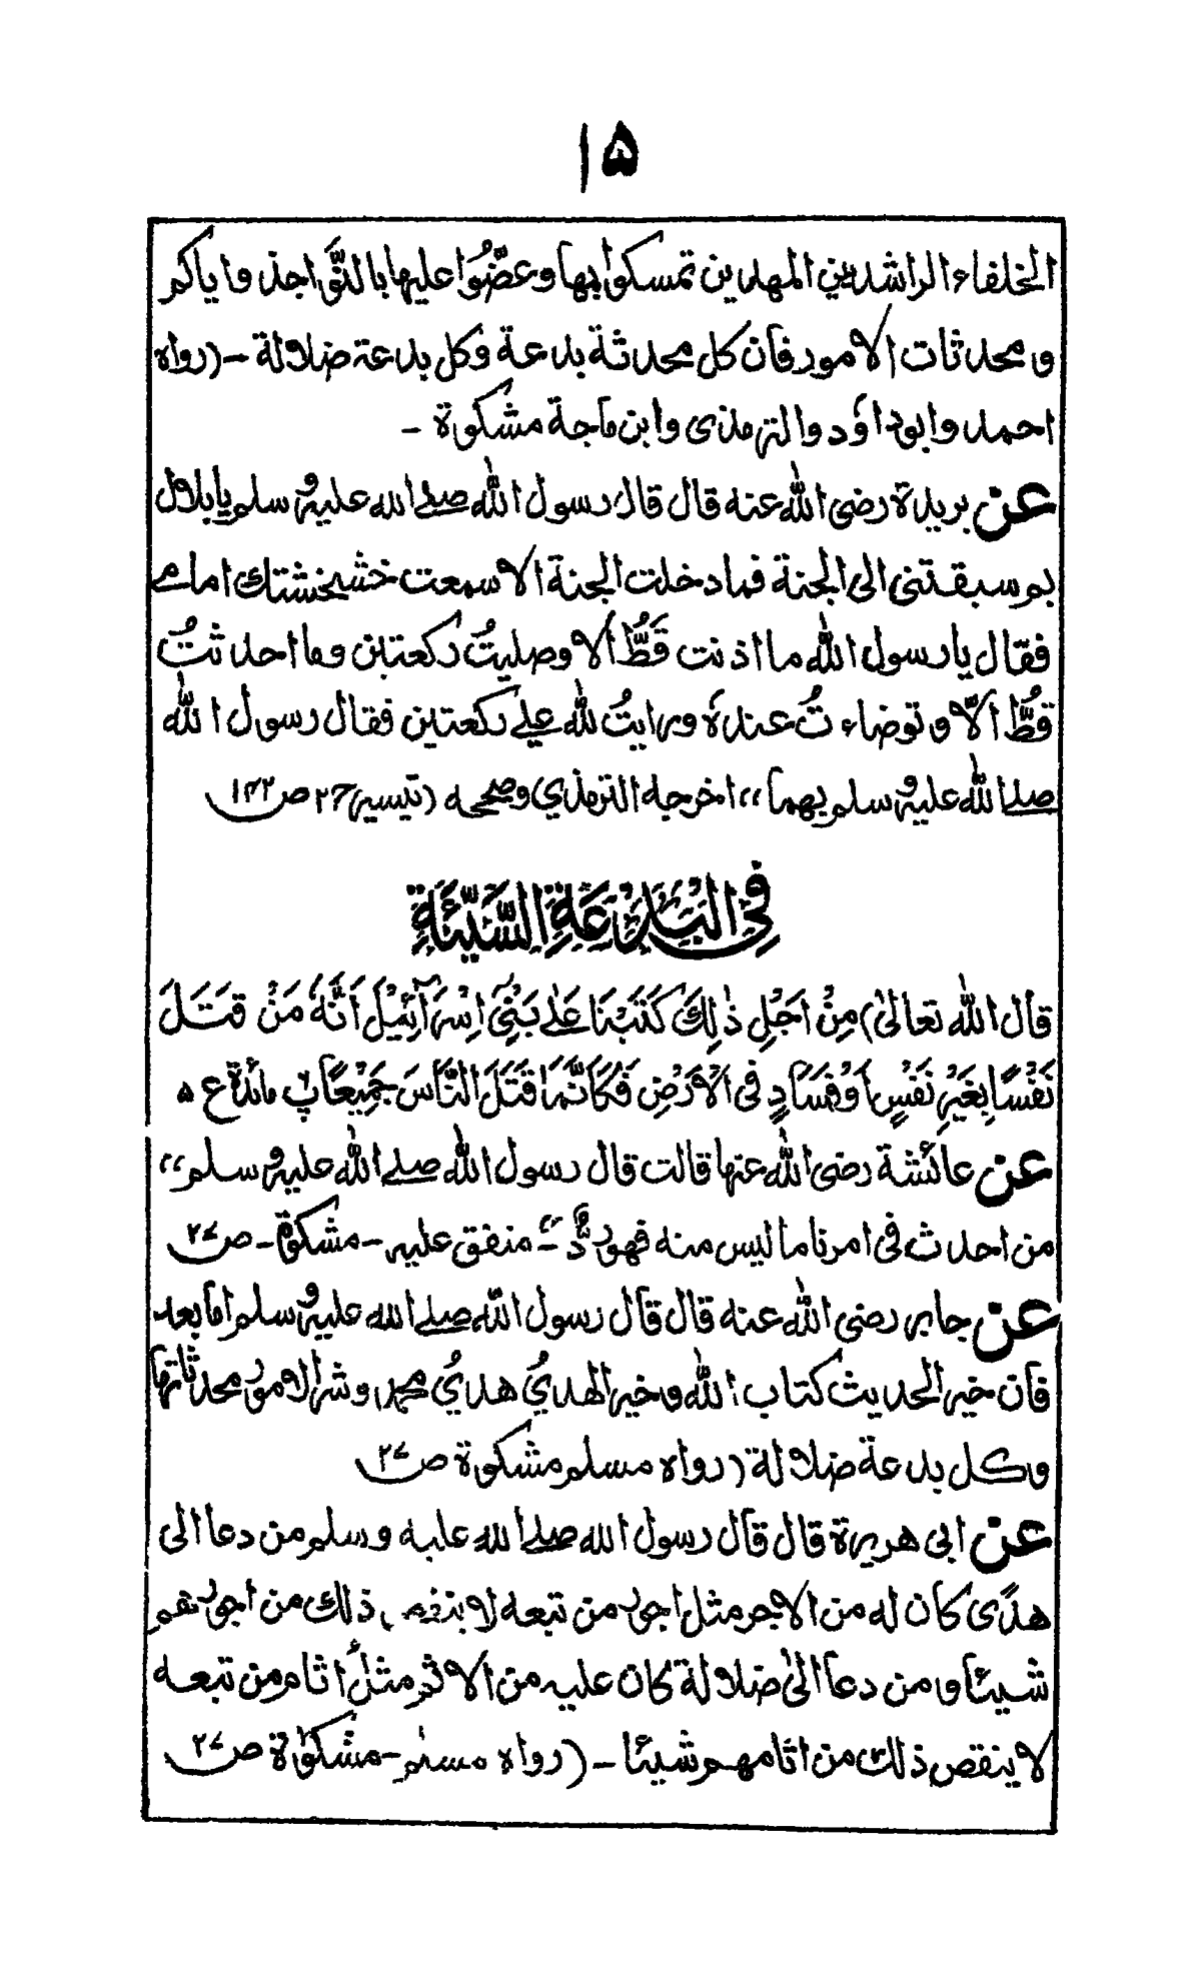 ۱۵
الخلفاء الراشدين المهديين تمسكوا بها وعضُّوا عليها بالنَّواجذ واياكم
ومحدثات الامور فان كل محدثة بدعة وكل بدعة ضلالة - (رواه
احمد وابوداؤد والترمذى وابن ماجة مشكوة -
عن بريدة رضى الله عنه قال قال رسول الله صلے الله عليه وسلم يا بلال
بم سبقتنى الى الجنة فما دخلت الجنة الا سمعت خشخشتك امامے
فقال يا رسول الله ما اذنت قَطُّ الا وصليتُ ركعتين وما احدثتُ
قطُّ الّا وتوضاءتُ عندهٗ ورايتُ لله علے ركعتين فقال رسول الله
صلے الله عليه وسلم بهما،، اخرجه الترمذي وصححه (تيسير ج۲ ص۱۴۲
فِى الْبِدْعَةِ السَّيِّئَةِ
قال الله تعالىٰ) مِنْ اَجْلِ ذٰلِكَ كَتَبْنَا عَلٰے بَنِىْٓ اِسْرَآئِيْلَ اَنَّهٗ مَنْ قَتَلَ
نَفْسًا بِغَيْرِ نَفْسٍ اَوْ فَسَادٍ فِى الْاَرْضِ فَكَاَنَّمَا قَتَلَ النَّاسَ جَمِيْعًا پ مائدة ع ۵
عن عائشة رضى الله عنها قالت قال رسول الله صلے الله عليه وسلم،،
من احدث فى امرنا ما ليس منه فهو ردٌّ - متفق عليه - مشكوة - ص۲۷
عن جابر رضى الله عنه قال قال رسول الله صلے الله عليه وسلم اما بعد
فان خير الحديث كتاب الله وخير الهديُ هديُ محمد وشر الامور محدثاتها
وكل بدعة ضلالة (رواه مسلم مشكوة ص۲۷
عن ابى هريرة قال قال رسول الله صلے الله عليه وسلم من دعا الى
هدًى كان له من الاجر مثل اجور من تبعه لا ينقص ذلك من اجورهم
شيئا ومن دعا الىٰ ضلالة كان عليه من الاثم مثل اٰثام من تبعه
لا ينقص ذلك من اٰثامهم شيئا - (رواه مسلم - مشكوٰة ص۲۷